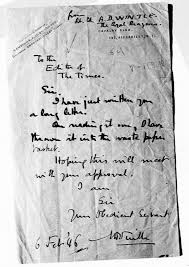 From
Lt. Col. A.D. WINTLE.
The Royal Dragoons
CAVALRY CLUB
To the
Editor of
The Times.
Sir,
I have just written you
a long letter.
On reading it over, I have
thrown it into the waste paper
basket.
Hoping this will meet
with your approval,
I am
Sir
Your Obedient Servant
6 Feb '46